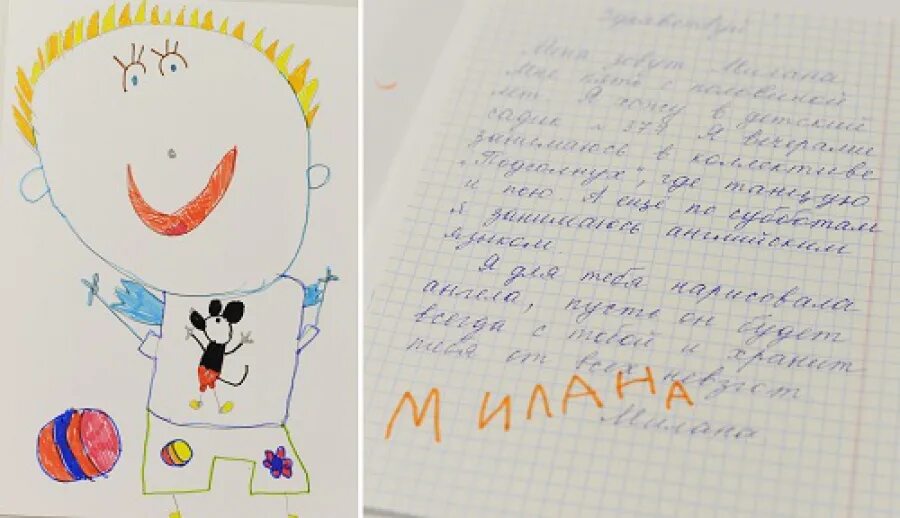 Здравствуй
Меня зовут Милана
Мне пять с половиной
лет. Я хожу в детский
садик № 377. Я вечерами
занимаюсь в коллективе
„Подсолнух", где танцую
и пою. А ещё по субботам
я занимаюсь английским
языком.
Я для тебя нарисовала
ангела, пусть он будет
всегда с тобой и хранит
тебя от всех невзгод
МИЛАНА
Милана